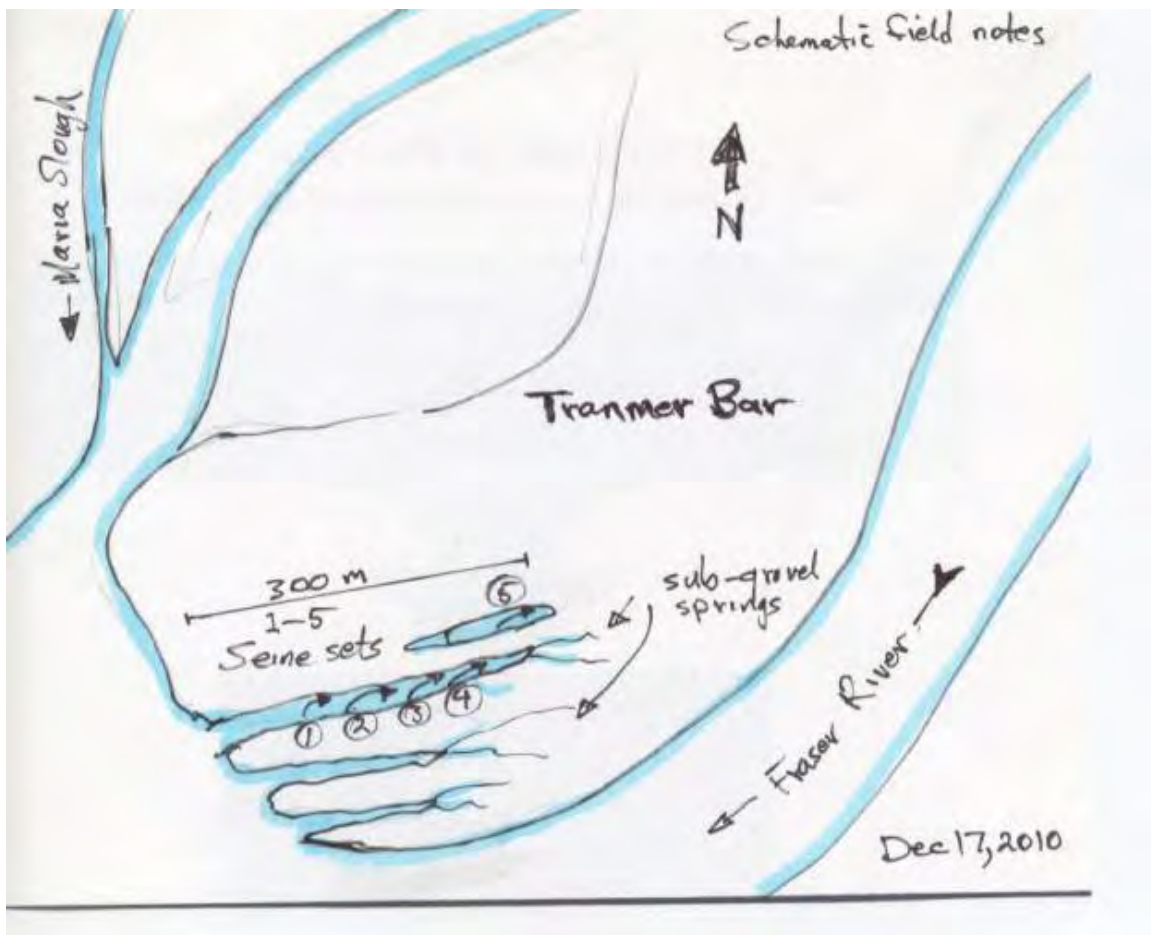 Schematic field notes
← Maria Slough
N
Tranmer Bar
300 m
1-5
Seine sets
sub-gravel
springs
5
1 2 3 4
← Fraser River
Dec 17, 2010